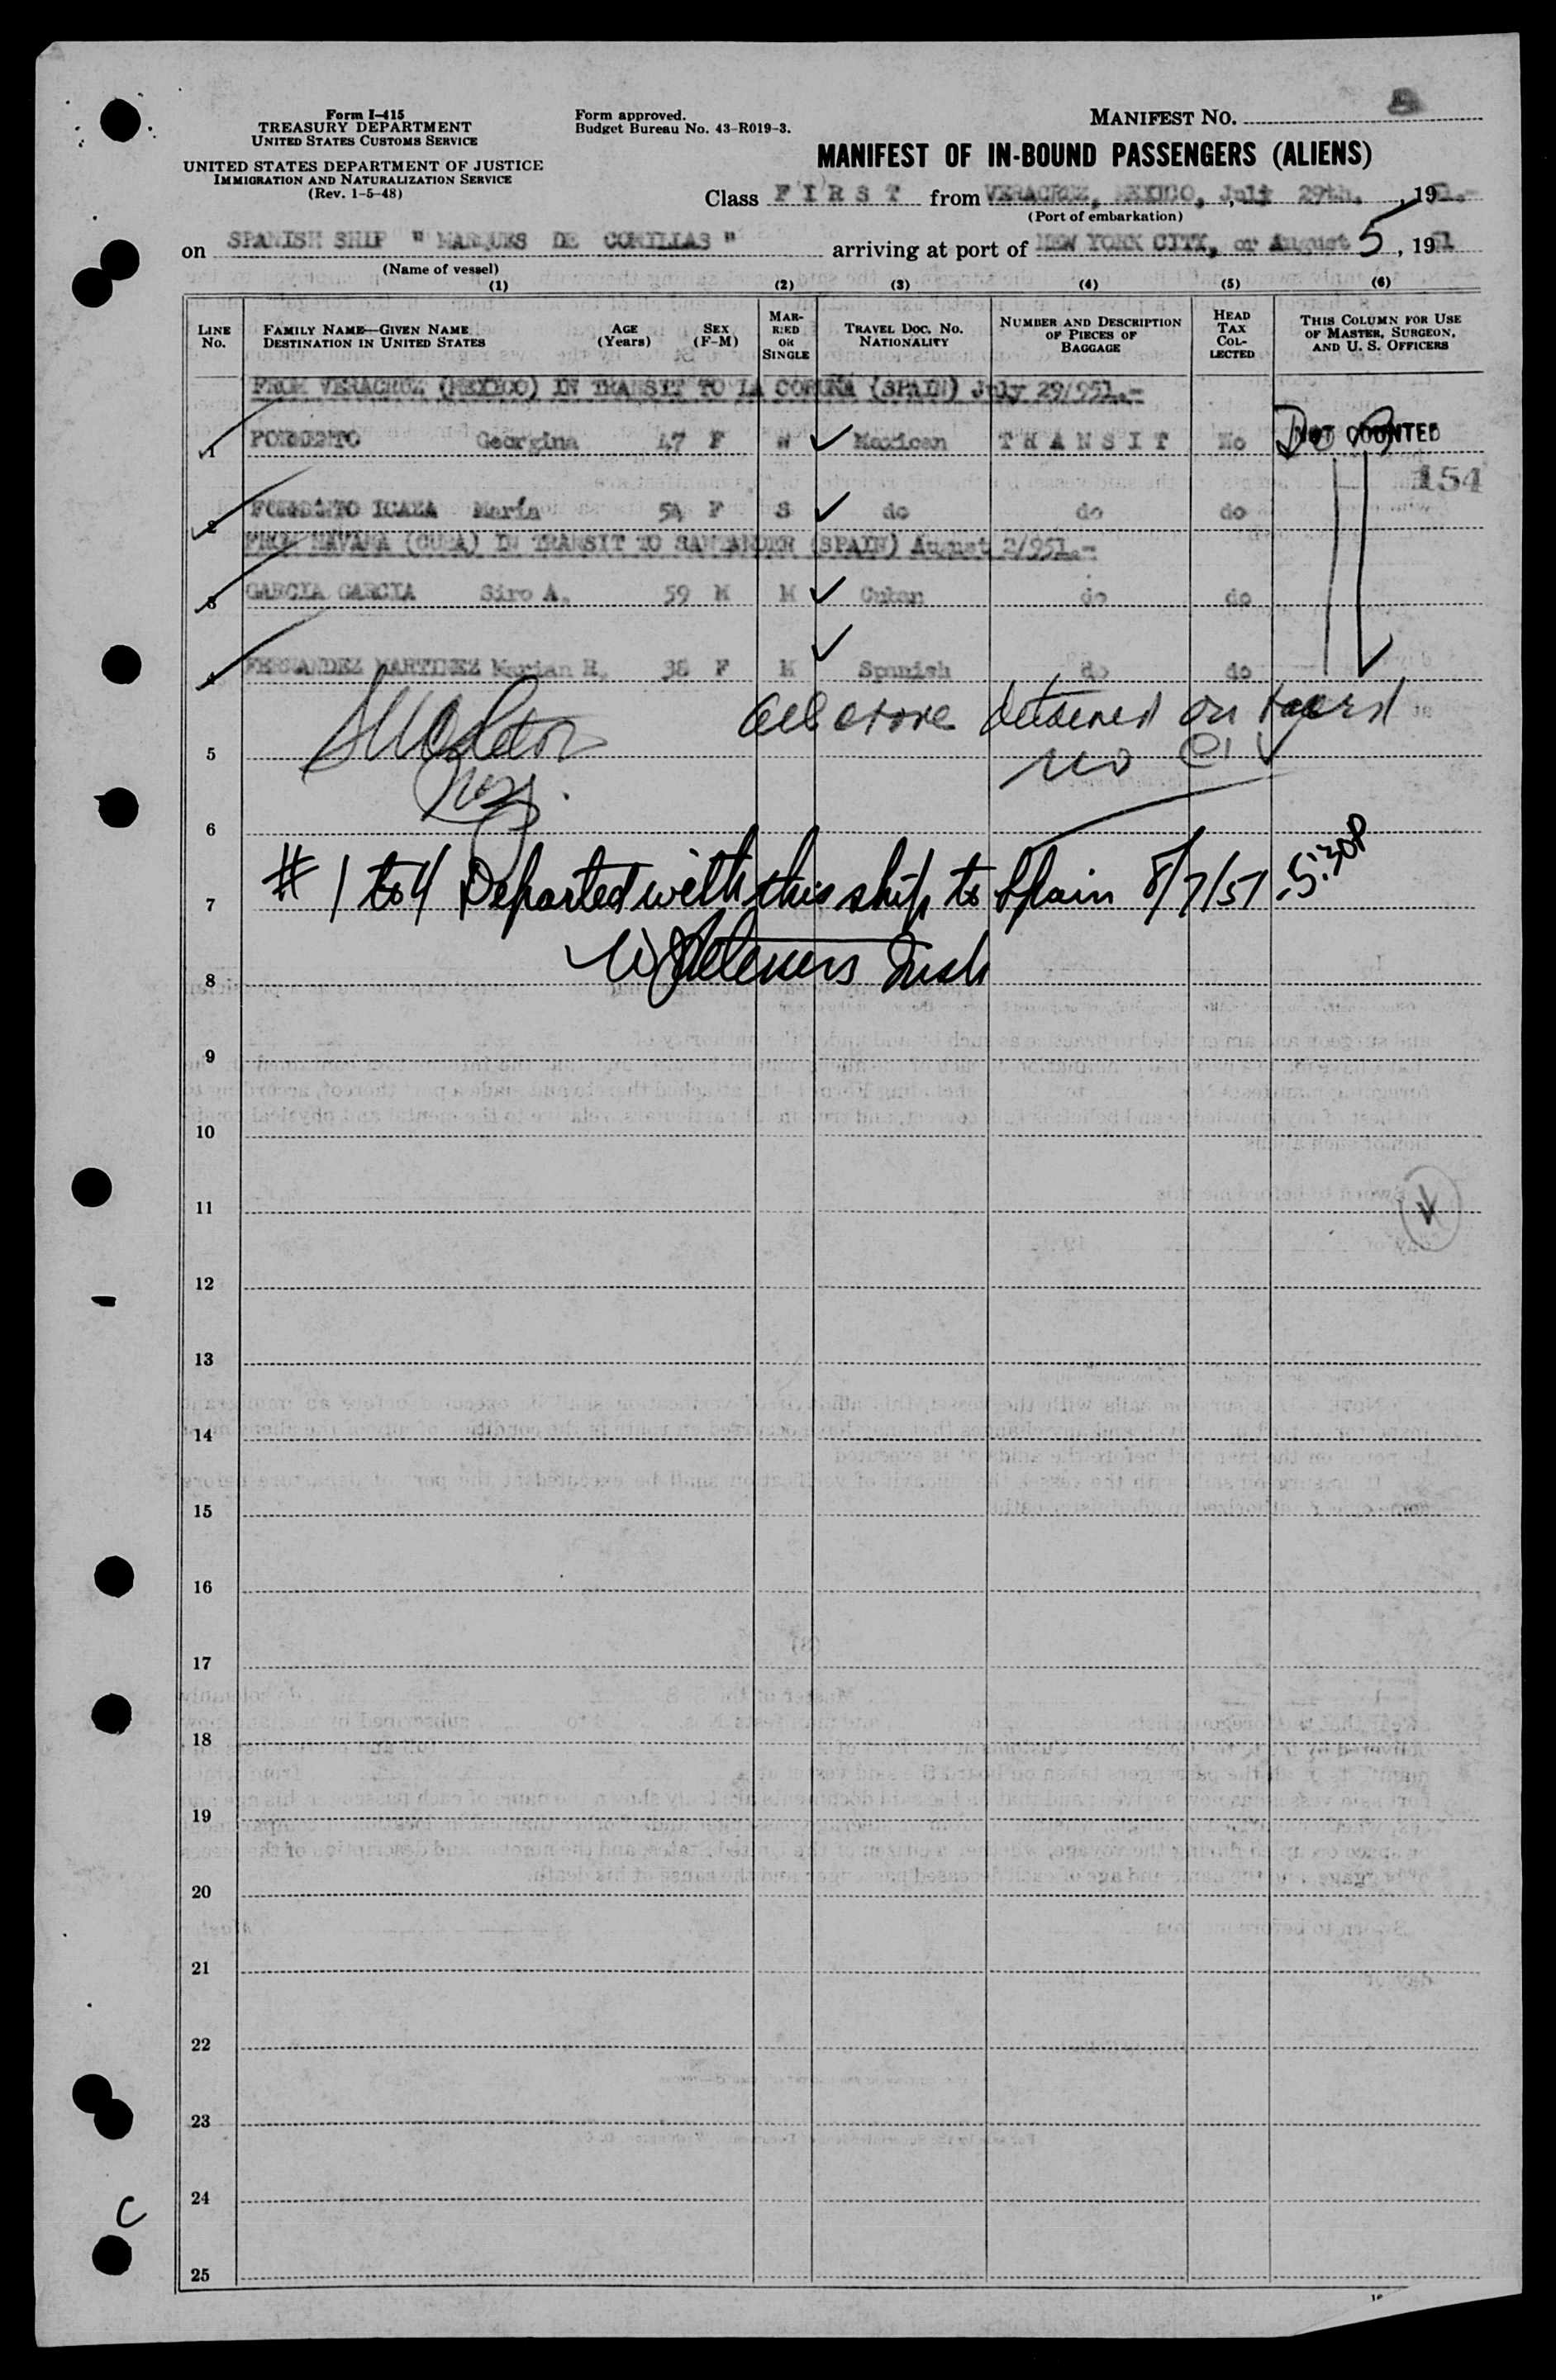 Form I-415
TREASURY DEPARTMENT
UNITED STATES CUSTOMS SERVICE
UNITED STATES DEPARTMENT OF JUSTICE
IMMIGRATION AND NATURALIZATION SERVICE
(Rev. 1-5-48)
Form approved.
Budget Bureau No. 43-R019-3.
MANIFEST NO.
MANIFEST OF IN-BOUND PASSENGERS (ALIENS)
Class F I R S T from VERACRUZ, MEXICO, July 29th. , 1951.-
(Port of embarkation)
on SPANISH SHIP " MARQUES DE COMILLAS " arriving at port of NEW YORK CITY, or August 5, 1951
(Name of vessel)
(1) (2) (3) (4) (5) (6)
LINE No. FAMILY NAME—GIVEN NAME DESTINATION IN UNITED STATES AGE (Years) SEX (F-M) MARRIED OR SINGLE TRAVEL DOC. NO. NATIONALITY NUMBER AND DESCRIPTION OF PIECES OF BAGGAGE HEAD TAX COLLECTED THIS COLUMN FOR USE OF MASTER, SURGEON, AND U. S. OFFICERS
FROM VERACRUZ (MEXICO) IN TRANSIT TO LA CORUÑA (SPAIN) July 29/951.-
1 Georgina 47 F W Mexican T R A N S I T No NOT COUNTED
154
2 ICAZA María 54 F S do do do
FROM HAVANA (CUBA) IN TRANSIT TO SANTANDER (SPAIN) August 2/951.-
3 GARCIA GARCIA Siro A. 59 M M Cuban do do
4 FERNANDEZ MARTINEZ Marian R. 38 F M Spanish do do
All above detained on board
5
6
# 1 to 4 Departed with this ship to Spain 8/7/51 5:30P
7
8
9
10
11
12
13
14
15
16
17
18
19
20
21
22
23
24
C
25